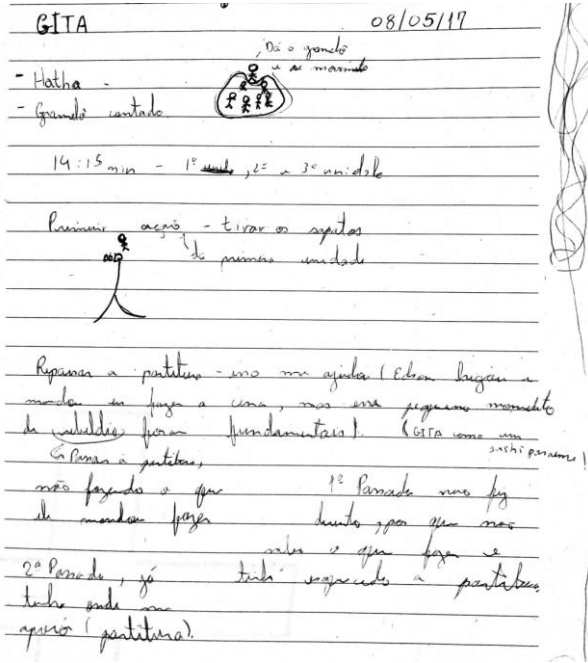 GITA 08/05/17
Dá o gramelô
e se movimenta
- Hatha -
- Gramelô cantado.
14:15 min - 1ª unida, 2ª e 3ª unidade
Primeira ação - tirar os sapatos
da primeira unidade
Repassar a partitura - isso me ajuda (Edson brigou e
mandou eu fazer a cena, mas esse pequeno momento
de rebeldia foram fundamentais). (GITA como um
Passar a partitura,
não fazendo o que
ele mandou fazer
1ª Passada não fiz
direito, por que não
sabia o que fazer e
tinha esquecido a partitura.
2ª Passada, já
tinha onde me
apoiar (partitura).